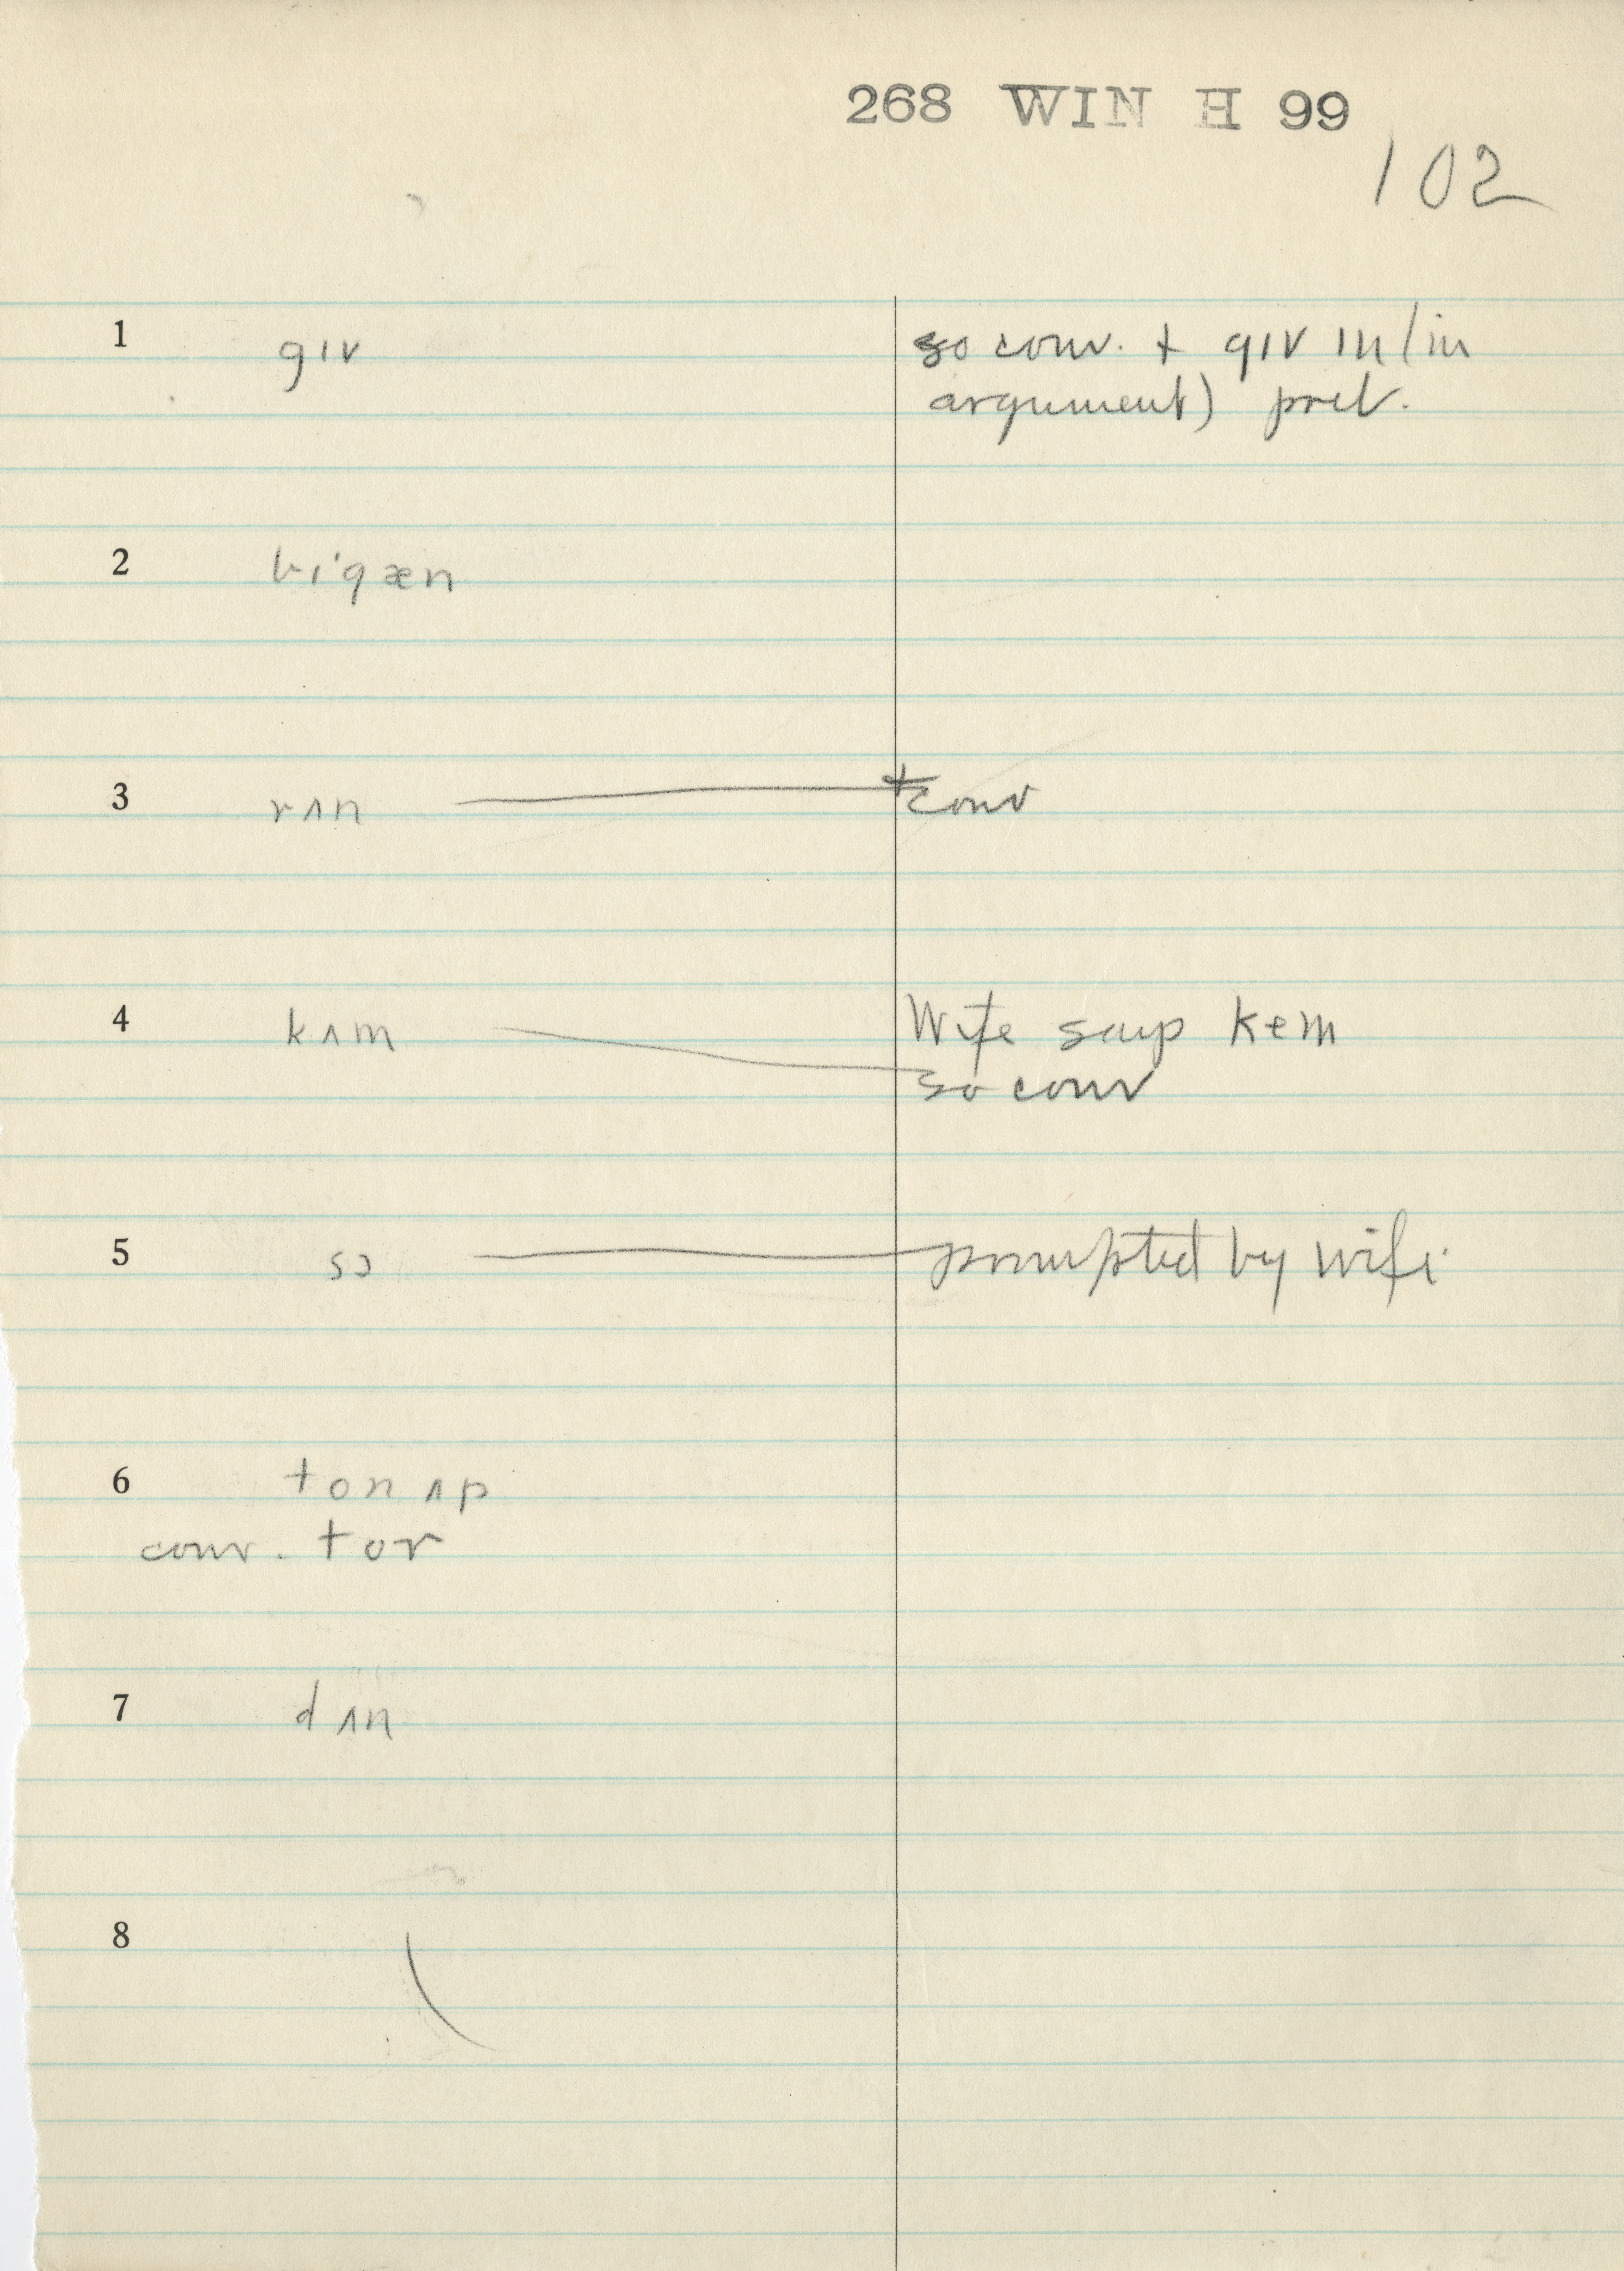 268 WIN H 99
102
1 gɪv so conv. + gɪv ɪn (in
argument) pret.
2 bi'gæn
3 rʌn + conv
4 kʌm Wife says kem
so conv
5 sɔ prompted by wife
6 ton ʌp
conv. tor
7 dʌn
8